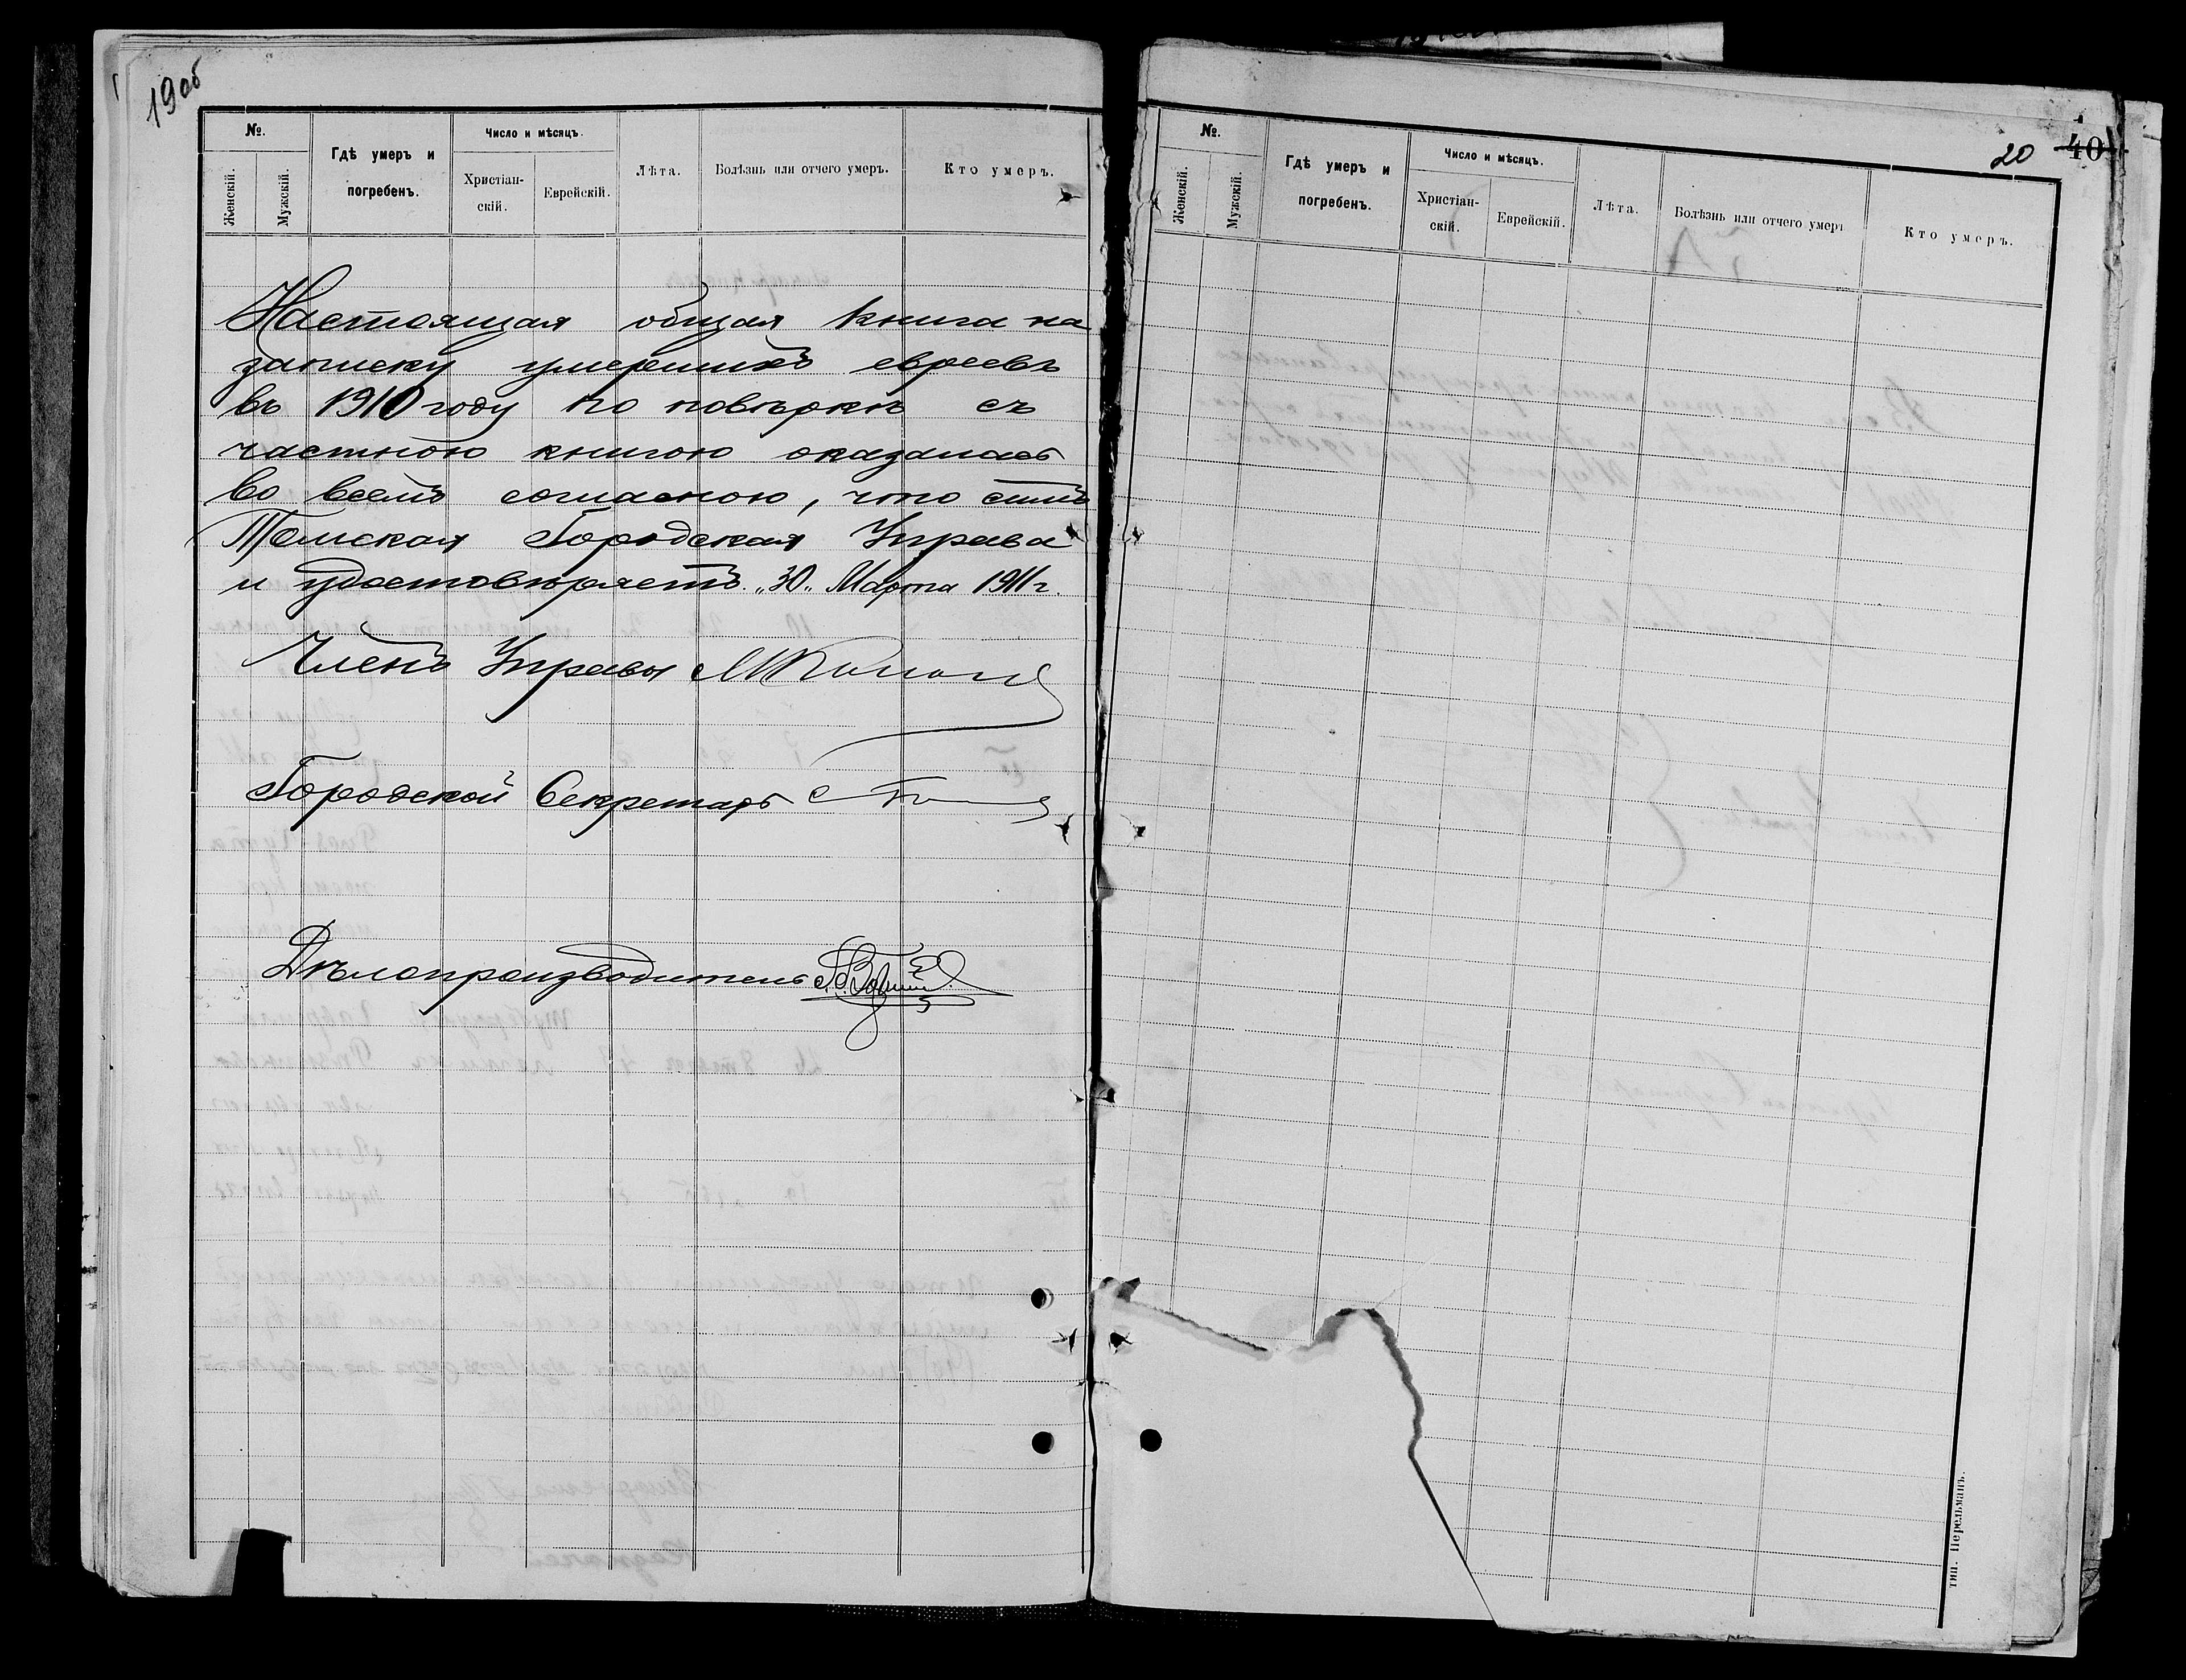 19 об
№.
Женскій.
Мужскій.
Гдѣ умеръ и
погребенъ.
Число и мѣсяцъ.
Христіан-
скій.
Еврейскій.
Лѣта.
Болѣзнь или отчего умеръ.
Кто умеръ.
Настоящая общая книга на
записку умершихъ евреевъ
въ 1910 году по повѣркѣ съ
частною книгою оказалась
во всемъ согласною, что симъ
Томская Городская Управа
и удостовѣряетъ. „30„ Марта 1911 г.
Членъ Управы
Городской Секретарь
Дѣлопроизводитель
20
40
№.
Женскій.
Мужскій.
Гдѣ умеръ и
погребенъ.
Число и мѣсяцъ.
Христіан-
скій.
Еврейскій.
Лѣта.
Болѣзнь или отчего умеръ
Кто умеръ.
тип. Перельманъ.